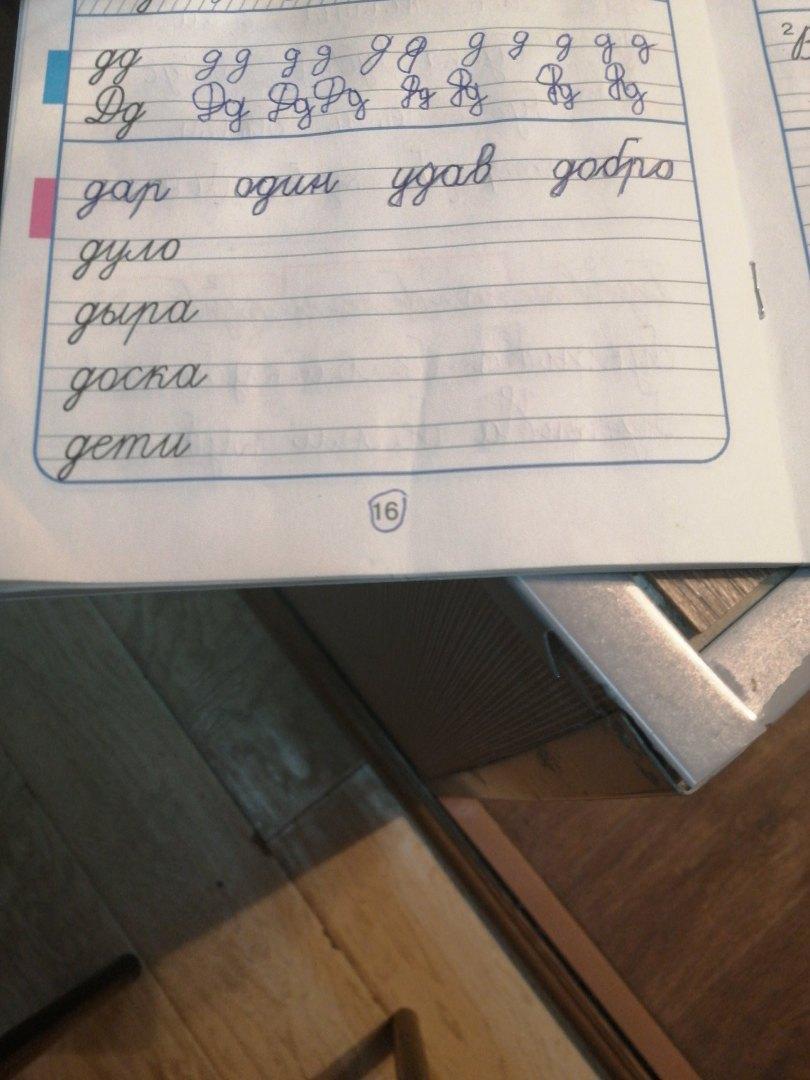 дд дд дд дд д д д д д
Дд Дд Дд Дд Дд Дд Дд Дд
дар один удав добро
дуло
дыра
доска
дети
16